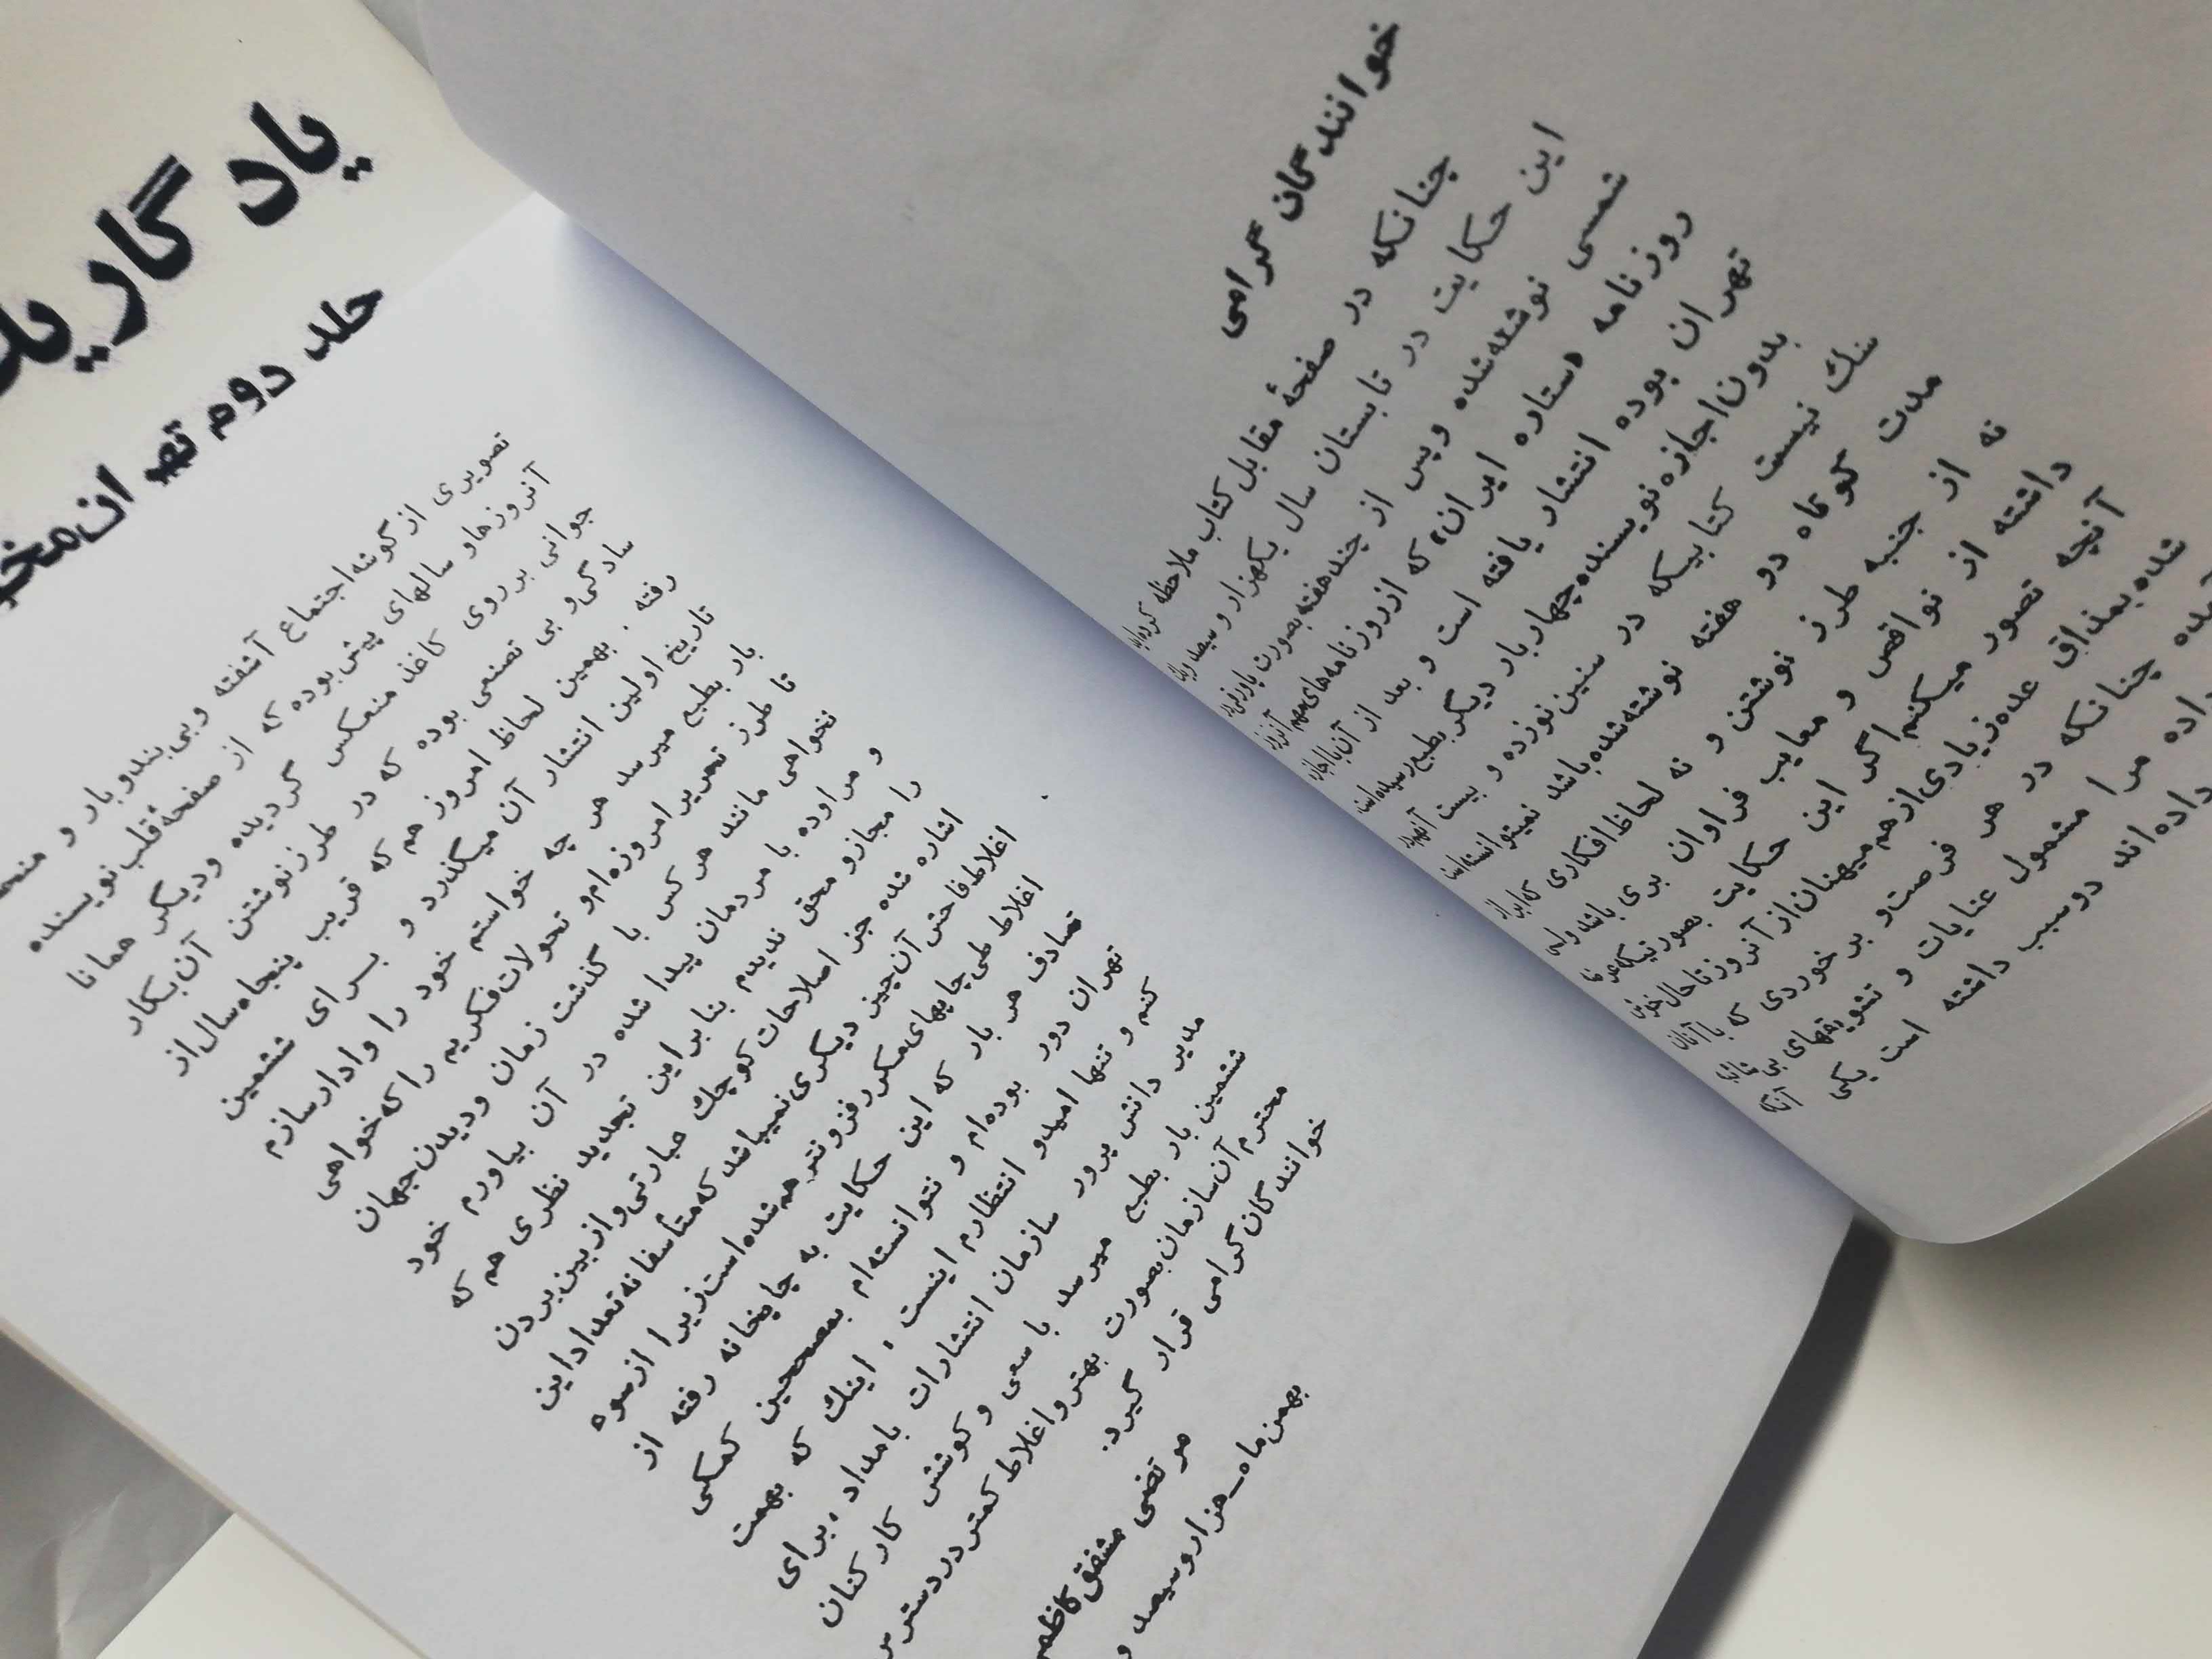 خوانندگان گرامی
چنانکه در صفحهٔ مقابل کتاب ملاحظه کرده‌اید
این حکایت در تابستان سال یکهزار و سیصد و
شمسی نوشته‌شده و پس از چند هفته بصورت پاورقی
روزنامه «ستاره ایران» که از روزنامه‌های مهم آنروز
تهران بوده انتشار یافته است و بعد از آن با اجازه
بدون اجازه نویسنده چهار بار دیگر بطبع رسیده است
شك نیست کتابیکه در سنین نوزده و بیست آنهم در
مدت کوتاه دو هفته نوشته‌شده باشد نمیتوانسته است
نه از جنبه طرز نوشتن و نه لحاظ افکاری که
داشته از نواقص و معایب فراوان بری باشد ولی
آنچه تصور میکنم اگر این حکایت بصورتیکه
شده بمذاق عده‌زیادی از هم‌میهنان از آنروز تا حال خوش
چنانکه در هر فرصت و بر خوردی که با آنان
داده مرا مشمول عنایات و تشویقهای بی شائبه
داده‌اند دو سبب داشته است یکی آنکه
یاد گار
جلد دوم تهران مخو
تصویری از گوشه اجتماع آشفته و بی‌بندوبار و
آنروزها و سالهای پیش بوده که از صفحهٔ قلب نویسنده
جوانی بر روی کاغذ منعکس گردیده ودیگر همانا
سادگی و بی تصنعی بوده که در طرز نوشتن آن بکار
رفته . بهمین لحاظ امروز هم که قریب پنجاه سال از
تاریخ اولین انتشار آن میگذرد و برای ششمین
بار بطبع میرسد هر چه خواستم خود را وادارسازم
تا طرز تحریر امروزه‌ام و تحولات فکریه را که خواهی
نخواهی مانند هر کس با گذشت زمان ودیدن جهان
و مراوده با مردمان پیدا شده در آن بیاورم خود
را مجاز و محق ندیدم بنابر این تجدید نظری هم که
اشاره شده جز اصلاحات کوچك عبارتی و از بین بردن
اغلاط فاحش آن چیز دیگری نمیباشد که متأسفانه تعداد این
اغلاط طی چاپهای مکرر فزونتر هم شده است زیرا از سوء
تصادف هر بار که این حکایت به چاپخانه رفته از
تهران دور بوده‌ام و نتوانسته‌ام بمصححین کمکی
کنم و تنها امید و انتظارم اینست ، اینك که بهمت
مدیر دانش پرور سازمان انتشارات بامداد، برای
ششمین بار بطبع میرسد با سعی و کوشش کارکنان
محترم آن سازمان بصورت بهتر و اغلاط کمتر در دسترس
خوانندگان گرامی قرار گیرد.
مرتضی مشفق کاظمی
بهمن ماه - هزاروسیصد و